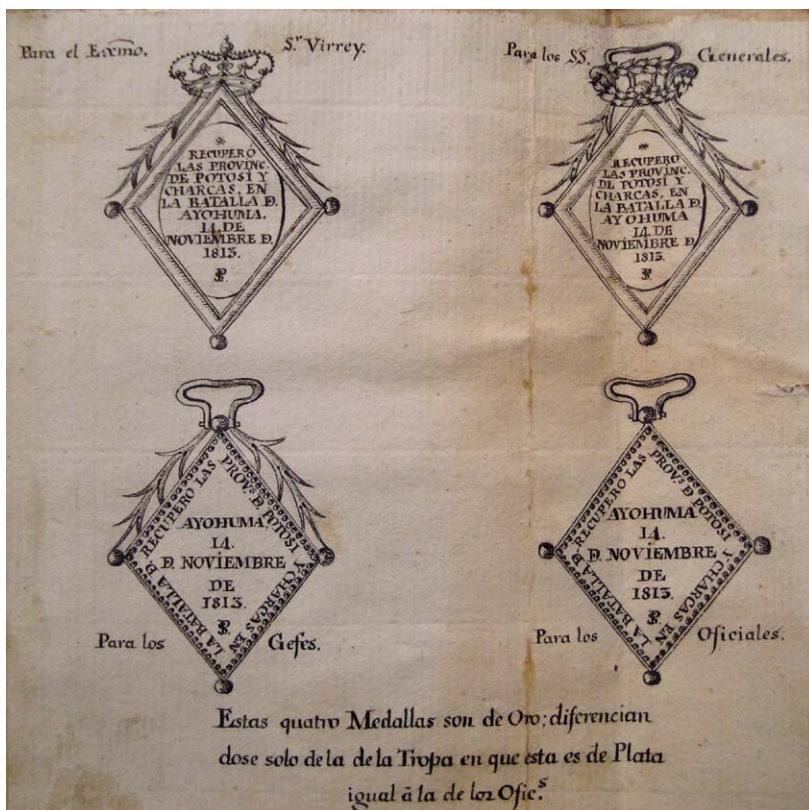 Para el Exm̃o. S.ʳ Virrey.
Para los SS. Generales.
RECUPERÓ
LAS PROVINC.
DE POTOSÍ Y
CHARCAS, EN
LA BATALLA D.
AYOHUMA.
14. DE
NOVIEMBRE D.
1813.
RECUPERO
LAS PROVINC.
DE POTOSÍ Y
CHARCAS, EN
LA BATALLA D.
AYOHUMA
14. DE
NOVIEMBRE D.
1813.
RECUPERO LAS PROV.ˢ D. POTOSI Y CHARCAS EN LA BATALLA D.
AYOHUMA
14.
D. NOVIEMBRE
DE
1813.
Para los Gefes.
RECUPERO LAS PROV.ˢ D. POTOSI Y CHARCAS EN LA BATALLA D.
AYOHUMA
14.
D. NOVIEMBRE
DE
1813.
Para los Oficiales.
Estas quatro Medallas son de Oro; diferencian
dose solo de la de la Tropa en que esta es de Plata
igual â la de los Ofic.ˢ